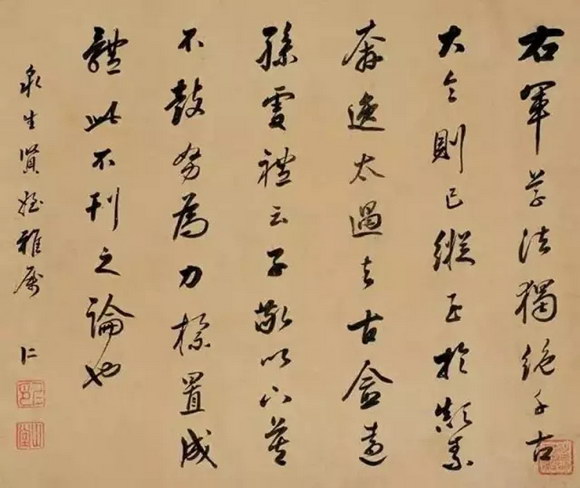 右軍草法獨絶千古
大令則已縱至於顛素
奔逸太過去古益遠
孫虔禮云子敬以下莫
不鼓努為力標置成
體此不刊之論也
泉生賢姪雅属 仁